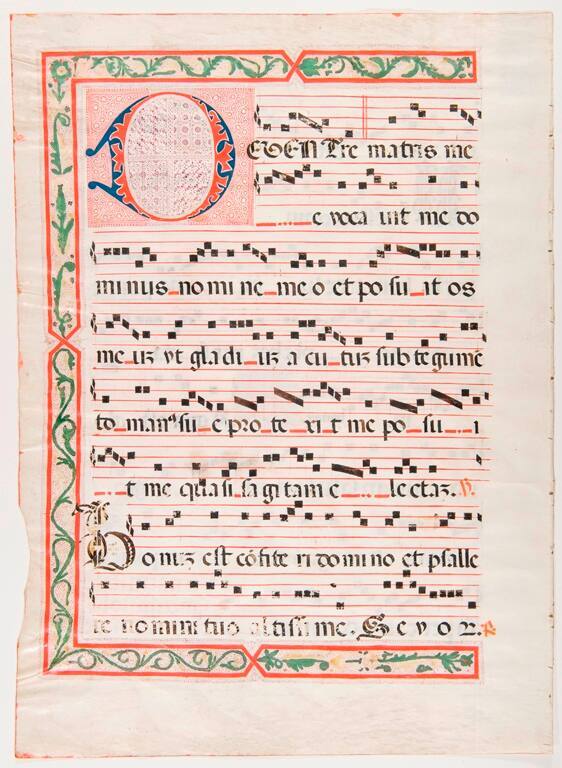 DE VEN Tre matris me
e voca uit me do
minus no mi ne me o et po su it os
me uz vt gladi uz a cu tuz sub tegume
to man⁹ su e pro te xi t me po su i
t me qua si sa gi tam e lectaz. ℣.
Bonuz est cōfite ri domino et psalle
re nomini tuo altissime. Se v o z.